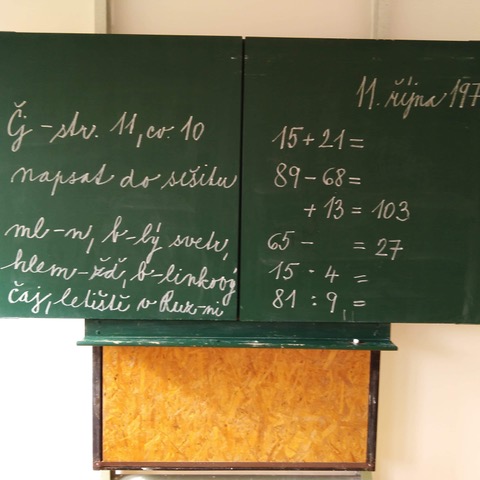 Čj - str. 11, cv. 10
napsat do sešitu
ml-n, b-lý svět,
hlem-žď, b-linkový
čaj, letiště v Ruz-ni
11. října 197
15 + 21 =
89 - 68 =
+ 13 = 103
65 -    = 27
15 · 4 =
81 : 9 =